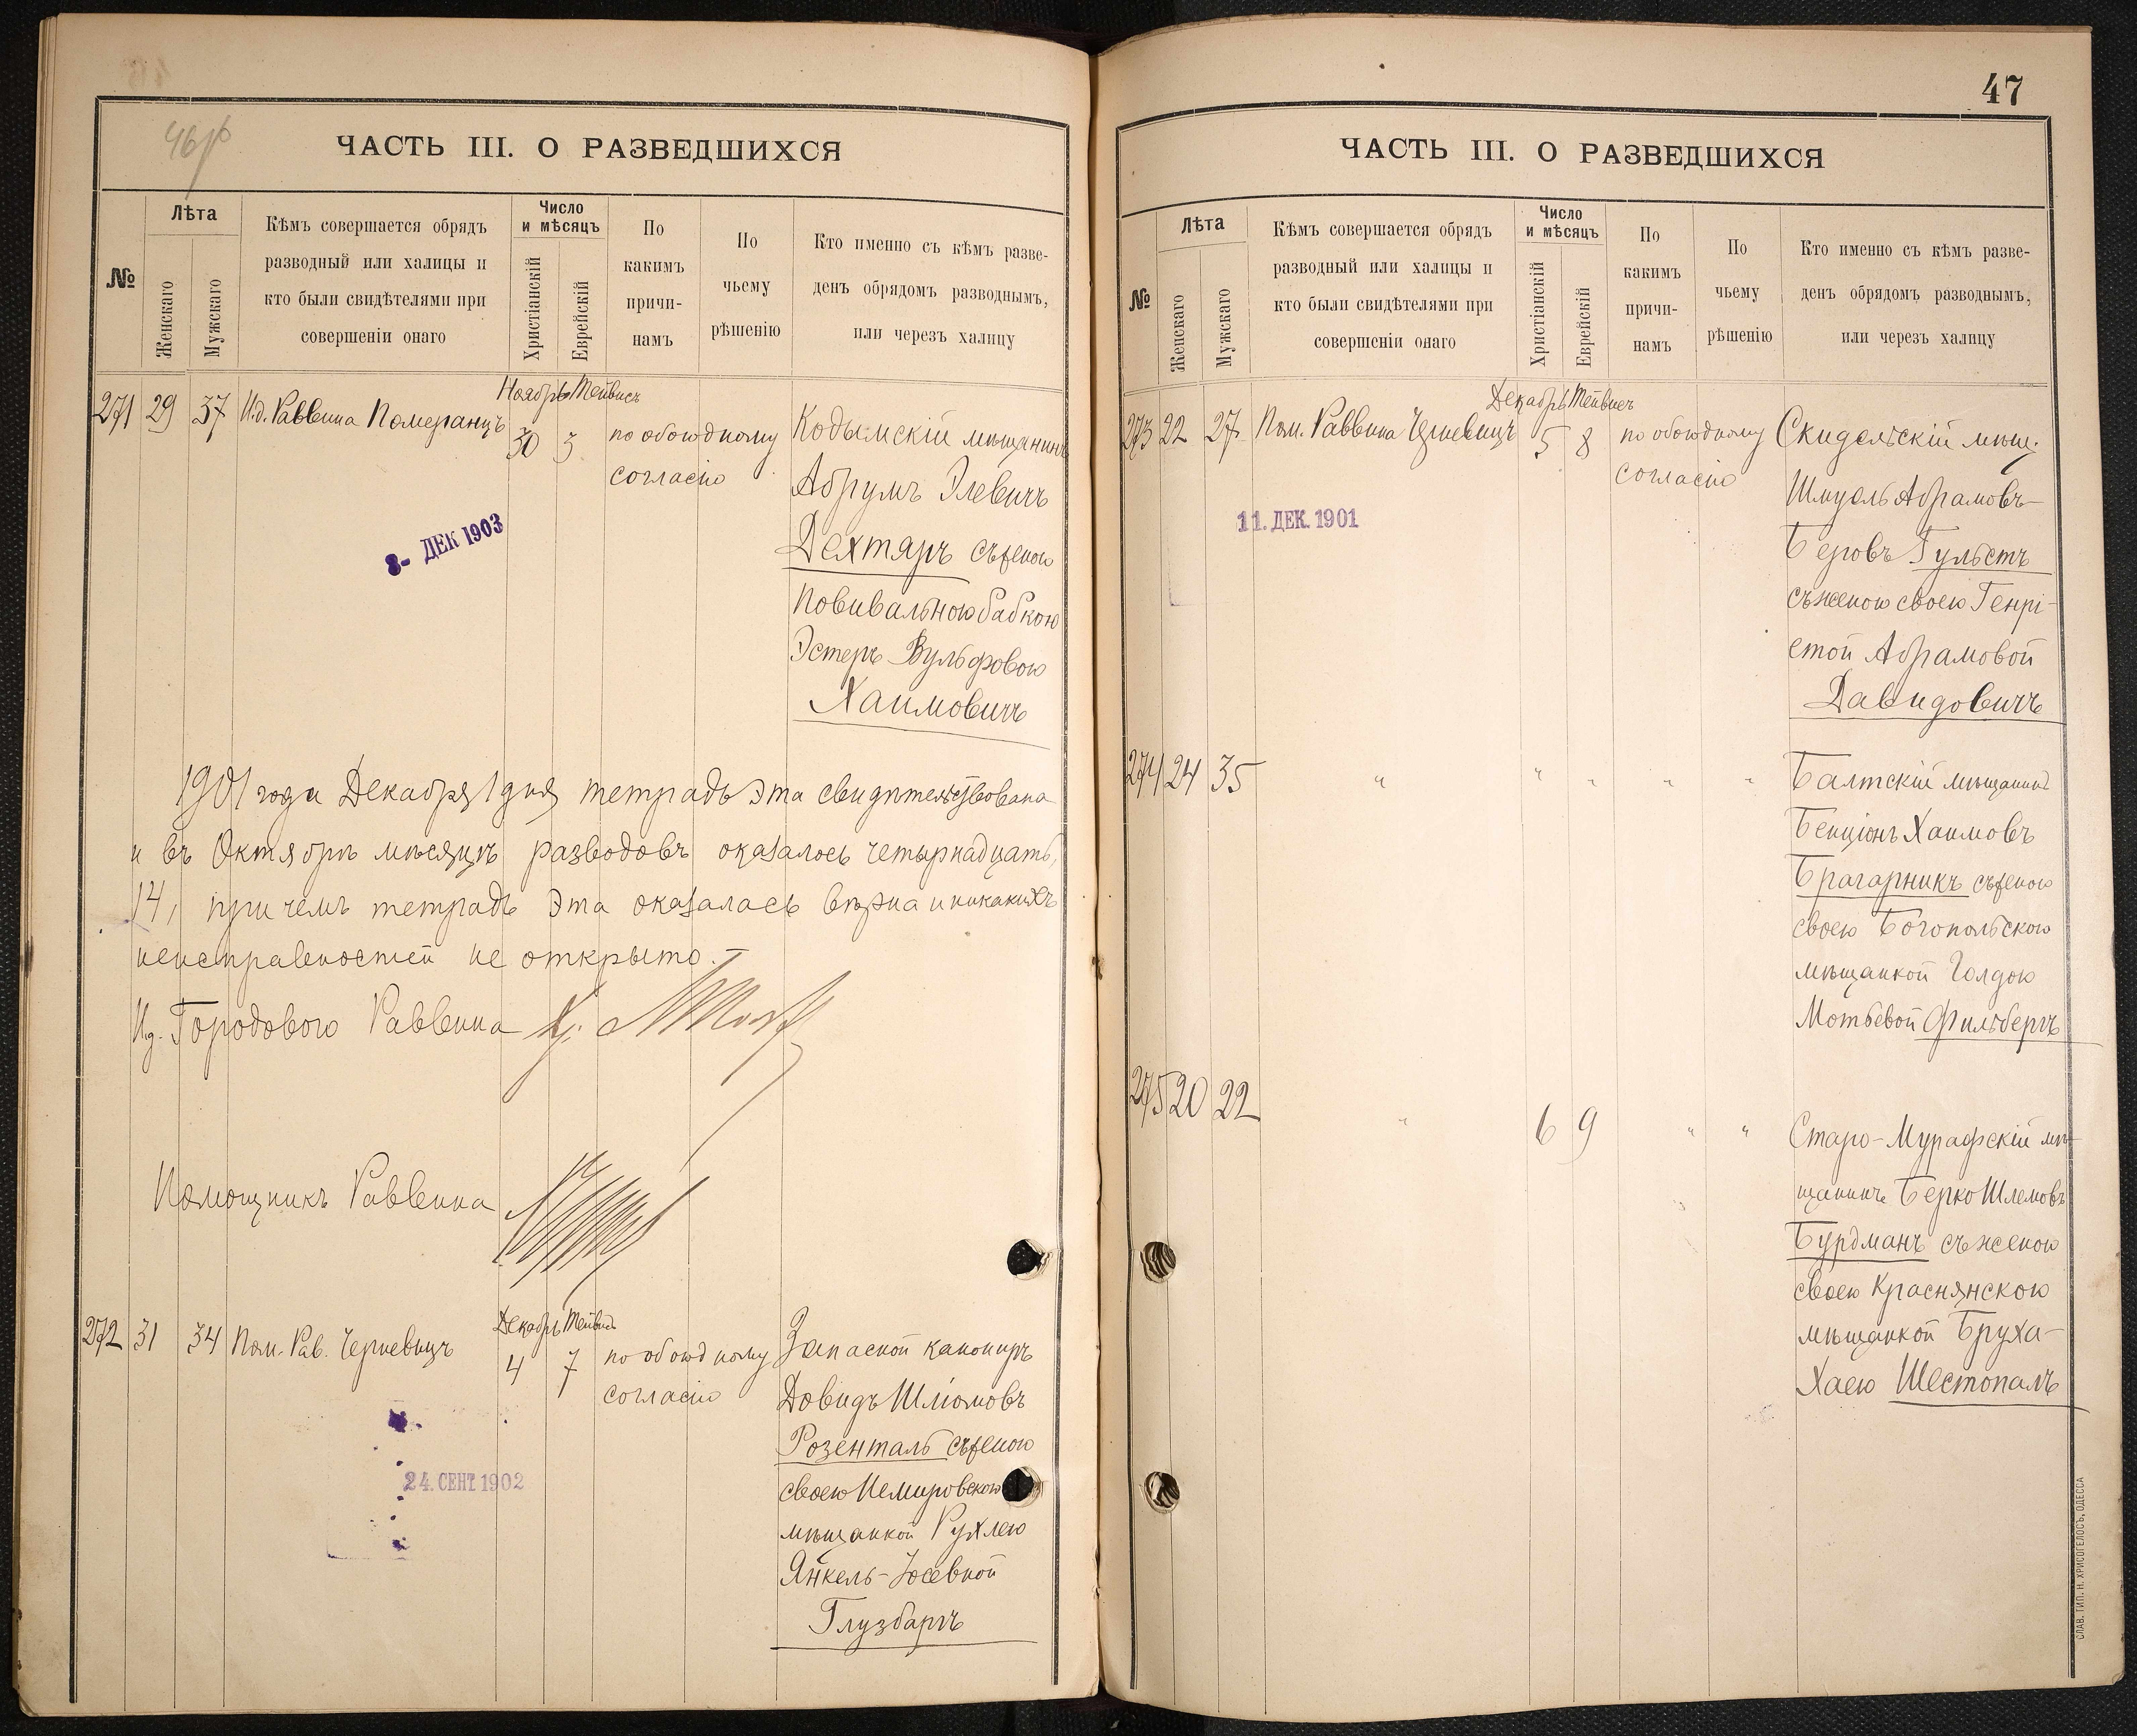 46 об
ЧАСТЬ III. О РАЗВЕДШИХСЯ
№
Лѣта
Женскаго
Мужскаго
Кѣмъ совершается обрядъ
разводный или халицы и
кто были свидѣтелями при
совершеніи онаго
Число
и мѣсяцъ
Христіанскій
Еврейскій
По
какимъ
причи-
намъ
По
чьему
рѣшенію
Кто именно съ кѣмъ разве-
денъ обрядомъ разводнымъ,
или черезъ халицу
Ноябрь Тейвисъ
271 29 37 И.д. Раввина Померанцъ 30 3 по обоюдному Кодымскій мѣщанинъ
согласію
Абрумъ Элевичъ
Дехтяръ съ женою
повивальною бабкою
Эстеръ Вульфовою
Хаимовичъ
8- ДЕК 1903
1901 года Декабря 1 дня тетрадь эта свидѣтельствована
и въ Октябрѣ мѣсяцѣ разводовъ оказалось четырнадцать,
14, при чемъ тетрадь эта оказалась вѣрна и никакихъ
неисправностей не открыто.-
И.д. Городового Раввина
Помощникъ Раввина
Декабрь Тейвисъ
272 31 34 Пом. Рав. Черневицъ 4 7 по обоюдному Запасной канониръ
согласію
Довидъ Шліомовъ
Розенталь съ женою
своею Немировскою
мѣщанкой Рухлею
Янкель-Іосевной
Глузбаргъ
24. СЕНТ 1902
47
ЧАСТЬ III. О РАЗВЕДШИХСЯ
№
Лѣта
Женскаго
Мужскаго
Кѣмъ совершается обрядъ
разводный или халицы и
кто были свидѣтелями при
совершеніи онаго
Число
и мѣсяцъ
Христіанскій
Еврейскій
По
какимъ
причи-
намъ
По
чьему
рѣшенію
Кто именно съ кѣмъ разве-
денъ обрядомъ разводнымъ,
или черезъ халицу
Декабрь Тейвисъ
273 22 27 Пом. Раввина Черневицъ 5 8 по обоюдному Скидельскій мѣщ.
согласію
Шмуель Абрамовъ-
Беровъ Гульстъ
съ женою своею Генрі-
етой Абрамовой
Давидовичъ
11. ДЕК. 1901
274 24 35 " " " " " Балтскій мѣщанинъ
Бенціонъ Хаимовъ
Брагарникъ съ женою
своею Богопольскою
мѣщанкой Голдою
Мотьевой Фильбергъ
275 20 22 " 6 9 " " Старо-Мурафскій мѣ-
щанинъ Берко Шлемовъ
Бурдманъ съ женою
своею Краснянскою
мѣщанкой Бруха-
Хаею Шестопалъ
СЛАВ. ТИП. Н. ХРИСОГЕЛОСЪ, ОДЕССА